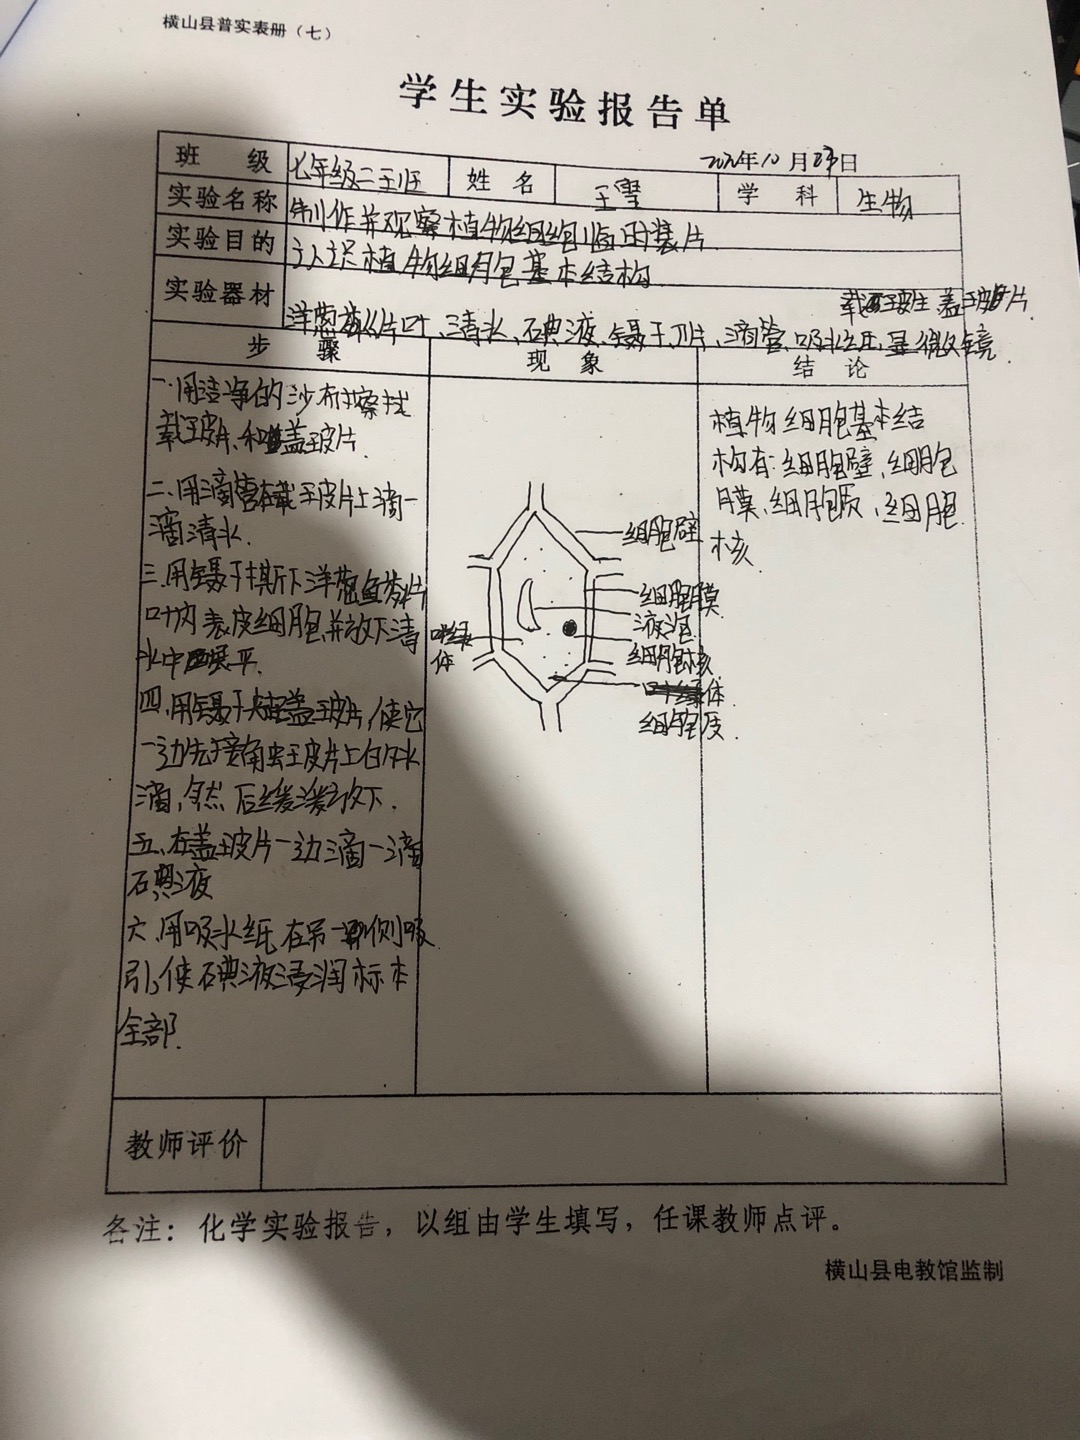 横山县普实表册（七）
学生实验报告单
年10月23日
班 级 七年级二班 姓 名 王 学 科 生物
实验名称 制作并观察植物细胞临时装片
实验目的 认识植物细胞基本结构
实验器材 载玻片 盖玻片
洋葱鳞片叶、清水、碘液、镊子、刀片、滴管、吸水纸、显微镜.
步 骤 现 象 结 论
一.用洁净的沙布擦拭
载玻片、和盖玻片.
二.用滴管在载玻片上滴一
滴清水.
三.用镊子撕下洋葱鱼鳞片
叶内表皮细胞,并放下清
水中展平.
四.用镊子夹起盖玻片,使它
一边先接触玻片上的水
滴,然后缓缓放下.
五.在盖玻片一边滴一滴
石碘液
六.用吸水纸在另一侧吸
引,使碘液浸润标本
全部.
细胞壁
细胞膜
液泡
细胞核
体
细胞质
叶绿
体
植物细胞基本结
构有:细胞壁、细胞
膜、细胞质、细胞
核
教师评价
各注：化学实验报告，以组由学生填写，任课教师点评。
横山县电教馆监制